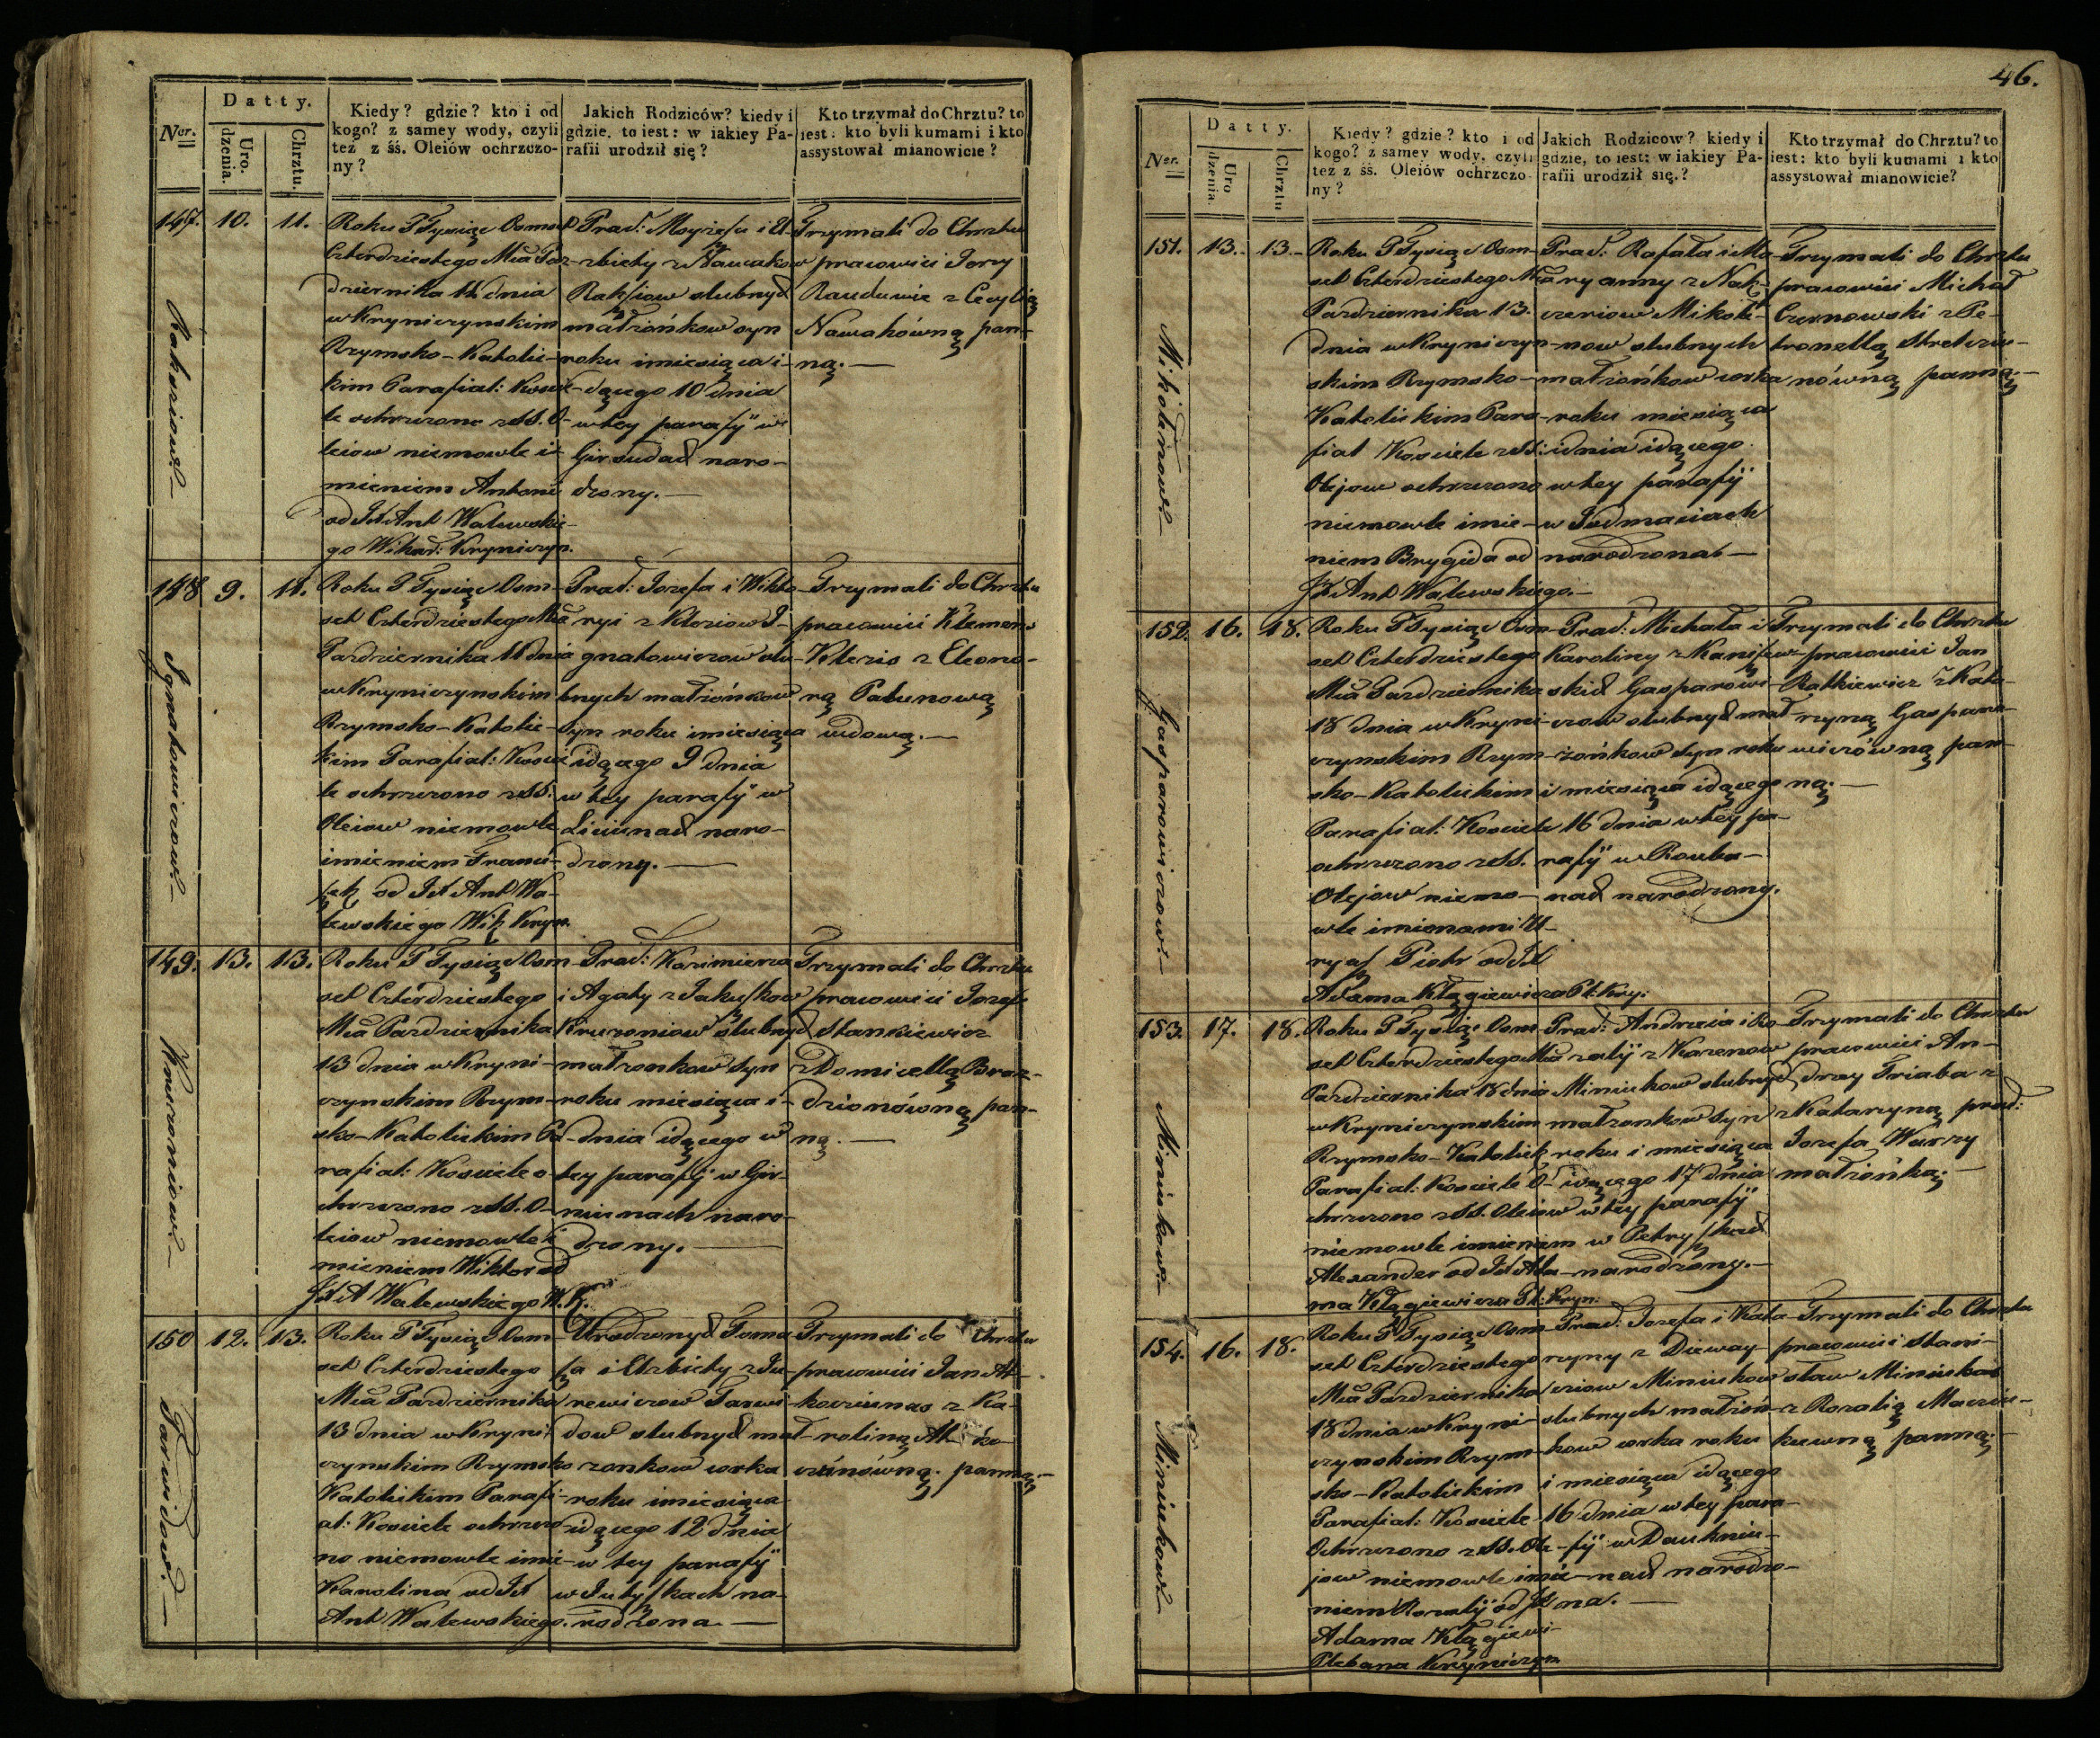 Datty.
Ner.
Uro.
dzenia.
Chrztu.
Kiedy? gdzie? kto i od
kogo? z samey wody, czyli
też z śś. Oleiów ochrzczo-
ny?
Jakich Rodziców? kiedy i
gdzie, to iest: w iakiey Pa-
rafii urodził się?
Kto trzymał do Chrztu? to
iest: kto byli kumami i kto
assystował mianowicie?
147. 10. 11.
Roku P Tysiąc Osmset
Czterdziestego Mca Paz-
dziernika 11 dnia
w Kryniczynskim
Rzymsko-Katolic-
kim Parafial: Koscie-
le ochrzczono z SS. O-
leiow niemowle i-
mieniem Antoni
od JX Ant Walewskie-
go Wikar: Kryniczyn.
Prac: Moyżesza i El-
zbiety z Nawakow
slubnych
małżonkow syn
roku i miesiąca i-
dącego 10 dnia
w tey parafij w
naro-
dzony.
Trzymali do Chrztu
pracowici Jerzy
z Cecylią
Nawakówną pan-
ną.
148 9. 11.
Ignatowiczow
Roku P Tysiąc Osm-
set Czterdziestego Mca
Pazdziernika 11 dnia
w Krynicznynskim
Rzymsko-Katolic-
kim Parafial: Koscie-
le ochrzczono z SS.
Oleiow niemowle
imieniem Franci-
szek od JX Ant Wa-
lewskiego Wik Kryn.
Prac: Jozefa i Wikto-
ryi z Kleziow I-
gnatowiczow slu-
bnych małżonkow
syn roku i miesiąca
idącego 9 dnia
w tey parafij w
naro-
dzony.
Trzymali do Chrztu
pracowici Klemens
Klezis z Eleono-
rą
wdową.
149. 13. 13.
Roku P Tysiąc Osm-
set Czterdziestego
Mca Pazdziernika
13 dnia w Kryni-
czynskim Rzym-
sko-Katolickim Pa-
rafial: Kosciele o-
chrzczono z SS. O-
leiow niemowle i-
mieniem Wiktor od
JX A Walewskiego W. K.
Prac: Kazimierza
i Agaty z Jakuszkow
slubnych
małzonkow syn
roku miesiąca i
dnia idącego w
tey parafij w Gir-
niunach naro-
dzony.
Trzymali do Chrztu
pracowici Jozef
Stankiewicz
z Domicellą
pan-
ną.
150 12. 13.
Roku P Tysiąc Osm-
set Czterdziestego
Mca Pazdziernika
13 dnia w Kryni-
czynskim Rzymsko
Katolickim Parafi-
al: Kosciele ochrzczo-
no niemowle imie-
Karolina od JX
Ant Walewskiego.
Urodzonych Toma-
sza i Elzbiety z Ju-
rewiczow
slubnych mał-
zonkow corka
roku i miesiąca
idącego 12 dnia
w tey parafij
na-
rodzona
Trzymali do Chrztu
pracowici Jan
z Ka-
roliną
panną.
46.
Datty.
Ner.
Uro
dzenia.
Chrztu
Kiedy? gdzie? kto i od
kogo? z samey wody, czyli
też z śś. Oleiów ochrzczo-
ny?
Jakich Rodzicow? kiedy i
gdzie, to iest: w iakiey Pa-
rafii urodził się.?
Kto trzymał do Chrztu? to
iest: kto byli kumami i kto
assystował mianowicie?
151. 13. 13.
Roku P Tysiąc Osm-
set Czterdziestego Mca
Pazdziernika 13.
dnia w Kryniczyn-
skim Rzymsko-
Katolickim Para-
fial Kosciele z SS:
Olejow ochrzczono
niemowle imie-
niem Brygida od
JX Ant Walewskiego.
Prac: Rafała i Ma-
ryanny z
slubnych
małżonkow corka
roku miesiąca
i dnia idącego
w tey parafij
w
narodzona
Trzymali do Chrztu
pracowici Michał
Czernowski z Pe-
tronellą
panną.
152. 16. 18.
Gasparowiczow
Roku P Tysiąc Osm-
set Czterdziestego
Mca Pazdziernika
18 dnia w Kryni-
czynskim Rzym-
sko-Katolickim
Parafial: Kosciele
ochrzczono z SS.
Olejow niemo-
wle imionami U-
ryasz Piotr od JX
Adama Klągiewicza Pl: Kry:
Prac: Michała i
Karoliny z
Gasparowi-
czow slubnych mał-
żonkow syn roku
i miesiąca idącego
16 dnia w tey pa-
rafij w
narodzony.
Trzymali do Chrztu
pracowici Jan
z Kata-
rzyną Gaspara-
wiczówną pan-
ną.
153. 17. 18.
Miniukow
Roku P Tysiąc Osm-
set Czterdziestego Mca
Pazdziernika 18 dnia
w Kryniczynskim
Rzymsko-Katolick
Parafial: Kosciele O-
chrzczono z SS. Oleiow
niemowle imieniem
Alexander od JX Ada-
ma Klągiewicza Pl: Kryn:
Prac: Andrzeia i Ro-
zalij z Karenow
Miniukow slubnych
małzonkow syn
roku i miesiąca
idącego 17 dnia
w tey parafij
w
narodzony.
Trzymali do Chrztu
pracowici An-
drzey Triaba z
z Katarzyną prac:
Jozefa
małżonką.
154. 16. 18.
Miniukow
Roku P Tysiąc Osm-
set Czterdziestego
Mca Pazdziernika
18 dnia w Kryni-
czynskim Rzym-
sko-Katolickim
Parafial: Kosciele
Ochrzczono z SS. Ole-
jow niemowle imie-
niem Rozalij od JX
Adama Klągiewi-
Plebana Kryniczyn
Prac: Jozefa i Kata-
rzyny z
Miniukow
slubnych małżon-
kow corka roku
i miesiąca idącego
16 dnia w tey para-
fij w
narodzo-
na.
Trzymali do Chrztu
pracowici Stani-
sław Miniuk
z Rozalią
panną.